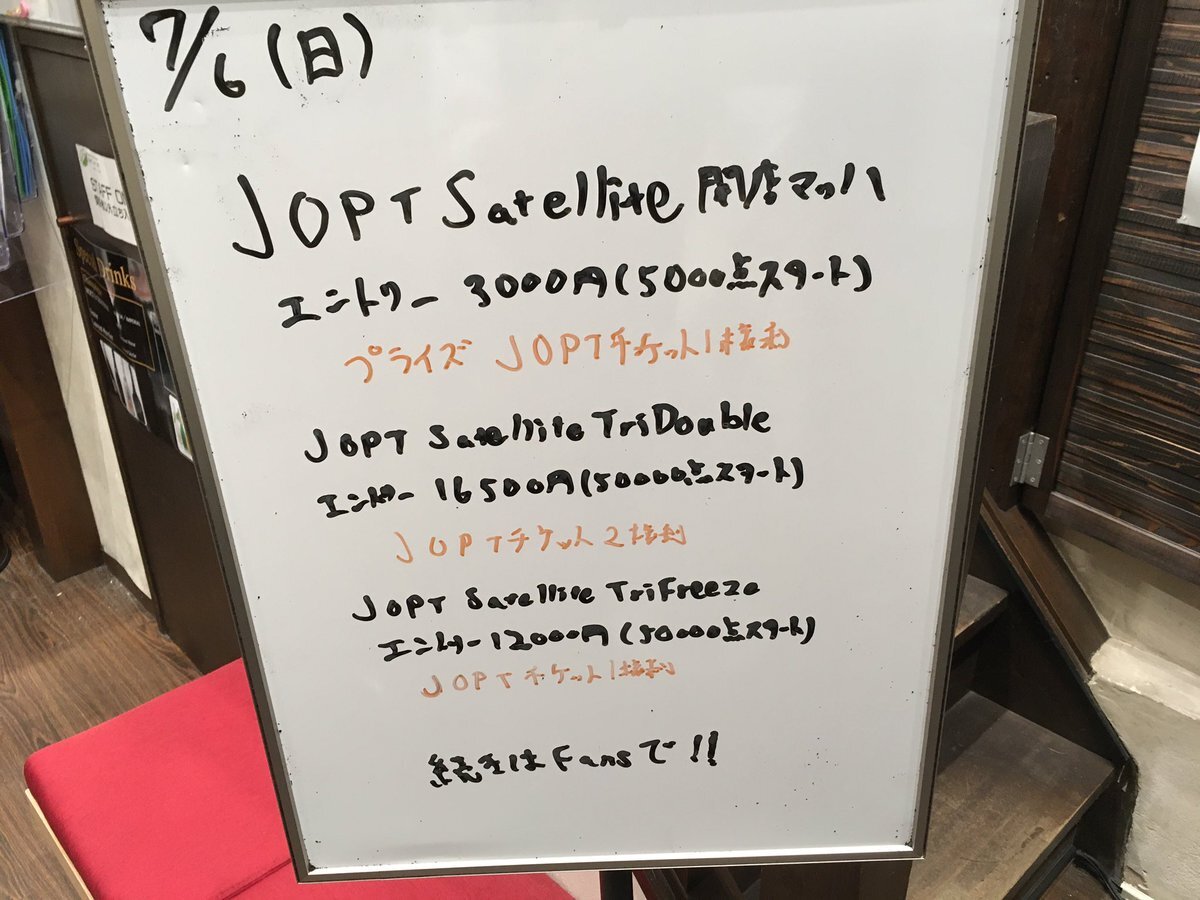 7/6(日)
JOPT Satellite 開店マッハ
エントリー 3000円(5000点スタート)
プライズ JOPTチケット1権利
JOPT Satellite TriDouble
エントリー 16500円(50000点スタート)
JOPTチケット2権利
JOPT Satellite TriFreeze
エントリー 12000円(50000点スタート)
JOPTチケット1権利
続きはFansで!!
STAFF
Drinks